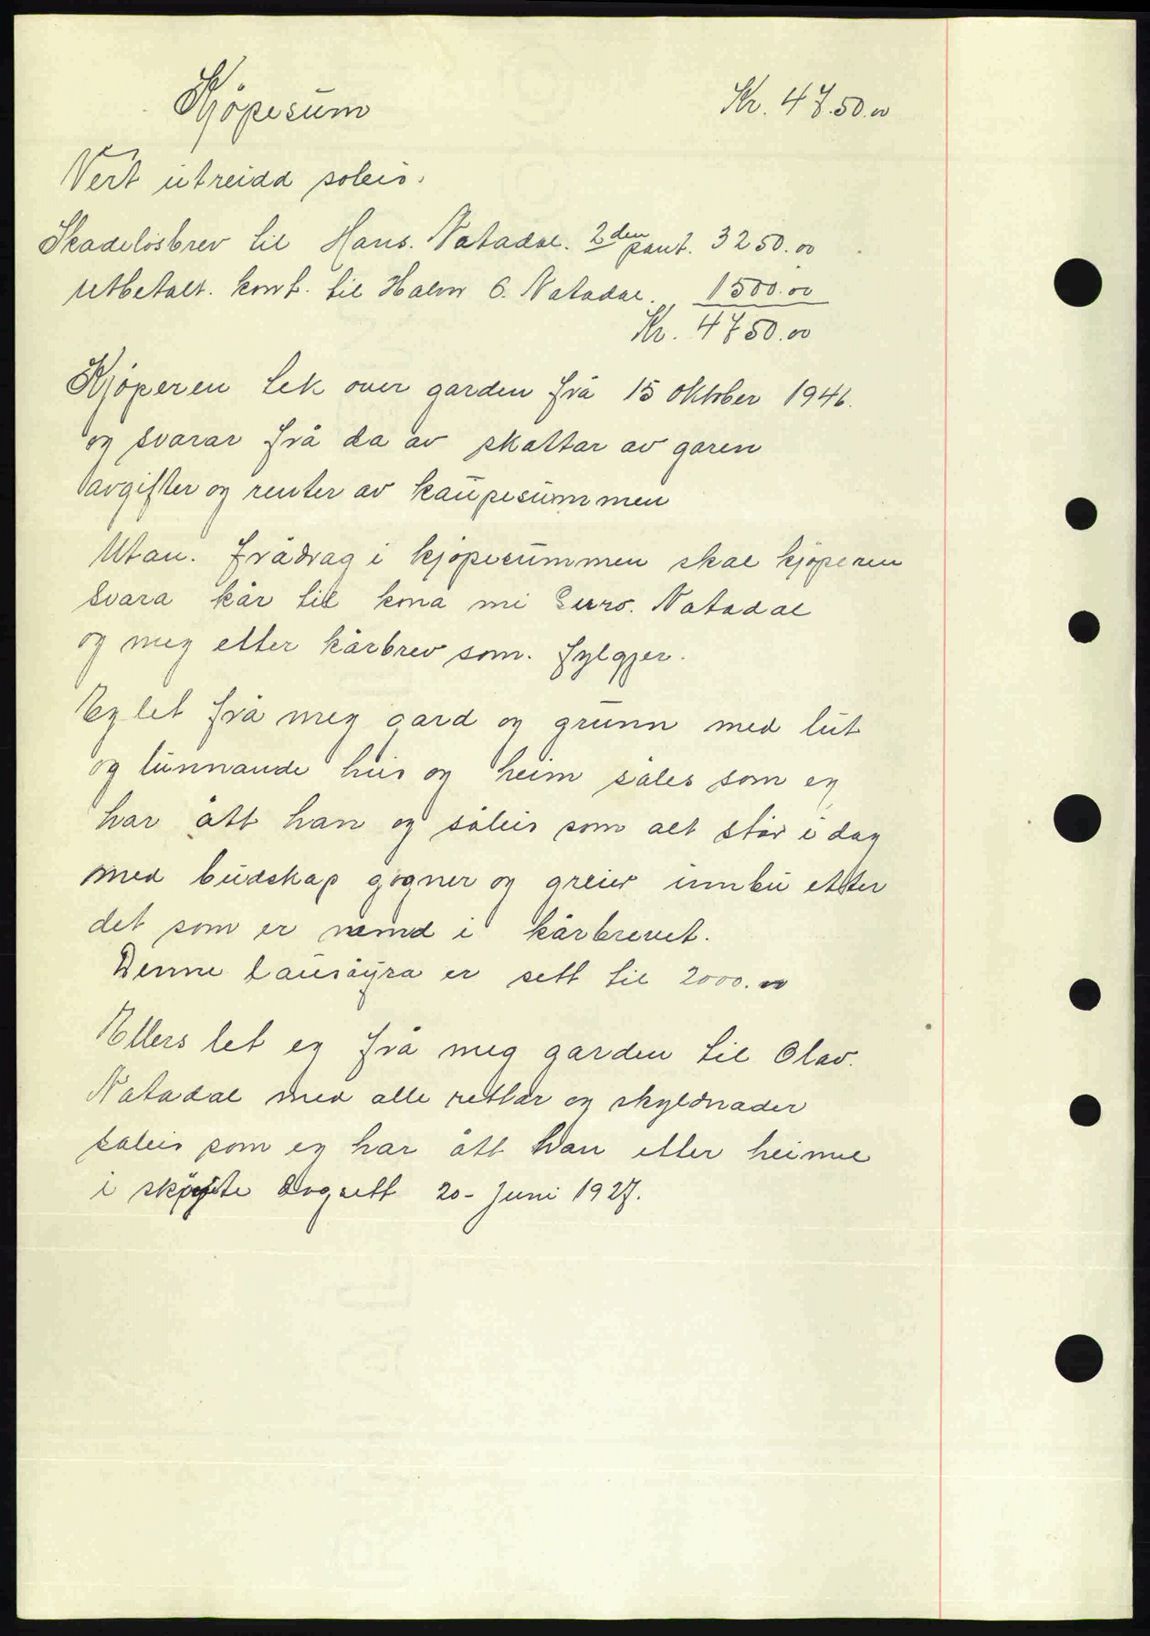 Kjöpesum Kr. 4750.00
Vert utreidd soleis.
Skadelösbrev til Hans. Natadal. 2den pant. 3250.00
utbetalt. kont. til Halvor O. Natadal. 1500.00
Kr. 4750.00
Kjöperen tek over garden frå 15 oktober 1946.
og svarar frå da av skattar av garen
avgifter og renter av kaupesummen
Utan. frådrag i kjöpesummen skal kjöperen
svara kår til kona mi Guro. Natadal
og meg etter kårbrev som. fylgjer.
Eg let frå meg gard og grunn med lut
og lunnande hus og heim såles som eg
har ått han og såleis som alt står i dag
med budskap gogner og greier innbu etter
det som er nemd i kårbrevet.
Denne lausöyra er sett til 2000.00
Ellers let eg frå meg garden til Olav.
Natadal med alle rettar og skyldnader
såleis som eg har ått han etter heimel
i sköyte avgsett 20- Juni 1927.